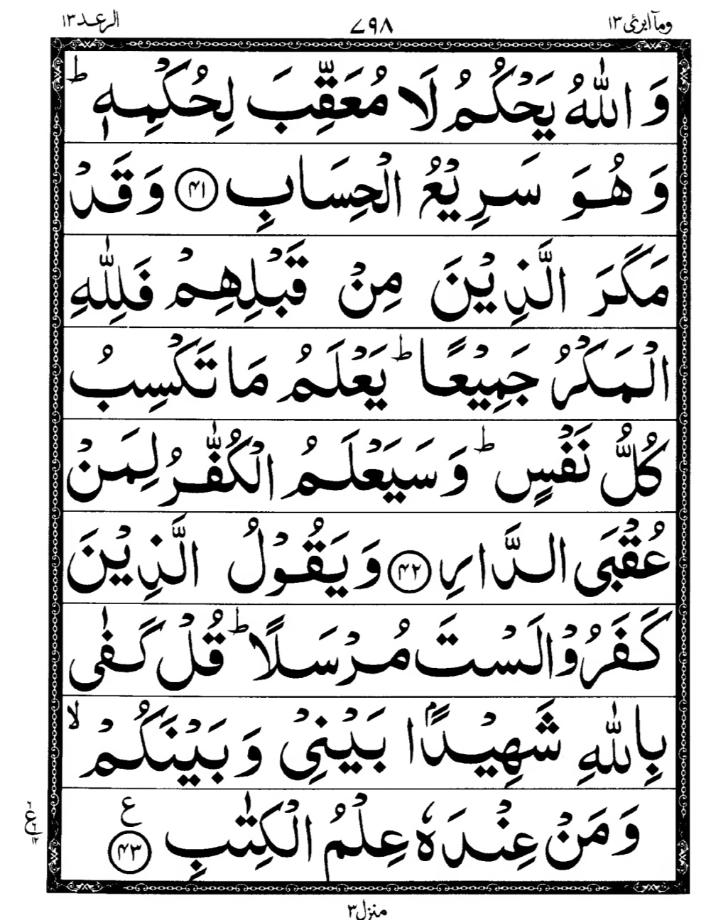 وما ابرئ ١٣ ٧٩٨ الرعد ١٣
وَ اللّٰهُ يَحْكُمُ لَا مُعَقِّبَ لِحُكْمِهٖ ؕ
وَ هُوَ سَرِيْعُ الْحِسَابِ ﴿۴۱﴾ وَ قَدْ
مَكَرَ الَّذِيْنَ مِنْ قَبْلِهِمْ فَلِلّٰهِ
الْمَكْرُ جَمِيْعًا ؕ يَعْلَمُ مَا تَكْسِبُ
كُلُّ نَفْسٍ ؕ وَ سَيَعْلَمُ الْكُفّٰرُ لِمَنْ
عُقْبَى الدَّارِ ﴿۴۲﴾ وَ يَقُوْلُ الَّذِيْنَ
كَفَرُوْا لَسْتَ مُرْسَلًا ؕ قُلْ كَفٰى
بِاللّٰهِ شَهِيْدًۢا بَيْنِيْ وَ بَيْنَكُمْ ۙ
وَ مَنْ عِنْدَهٗ عِلْمُ الْكِتٰبِ ﴿۴۳﴾ ع
منزل ٣